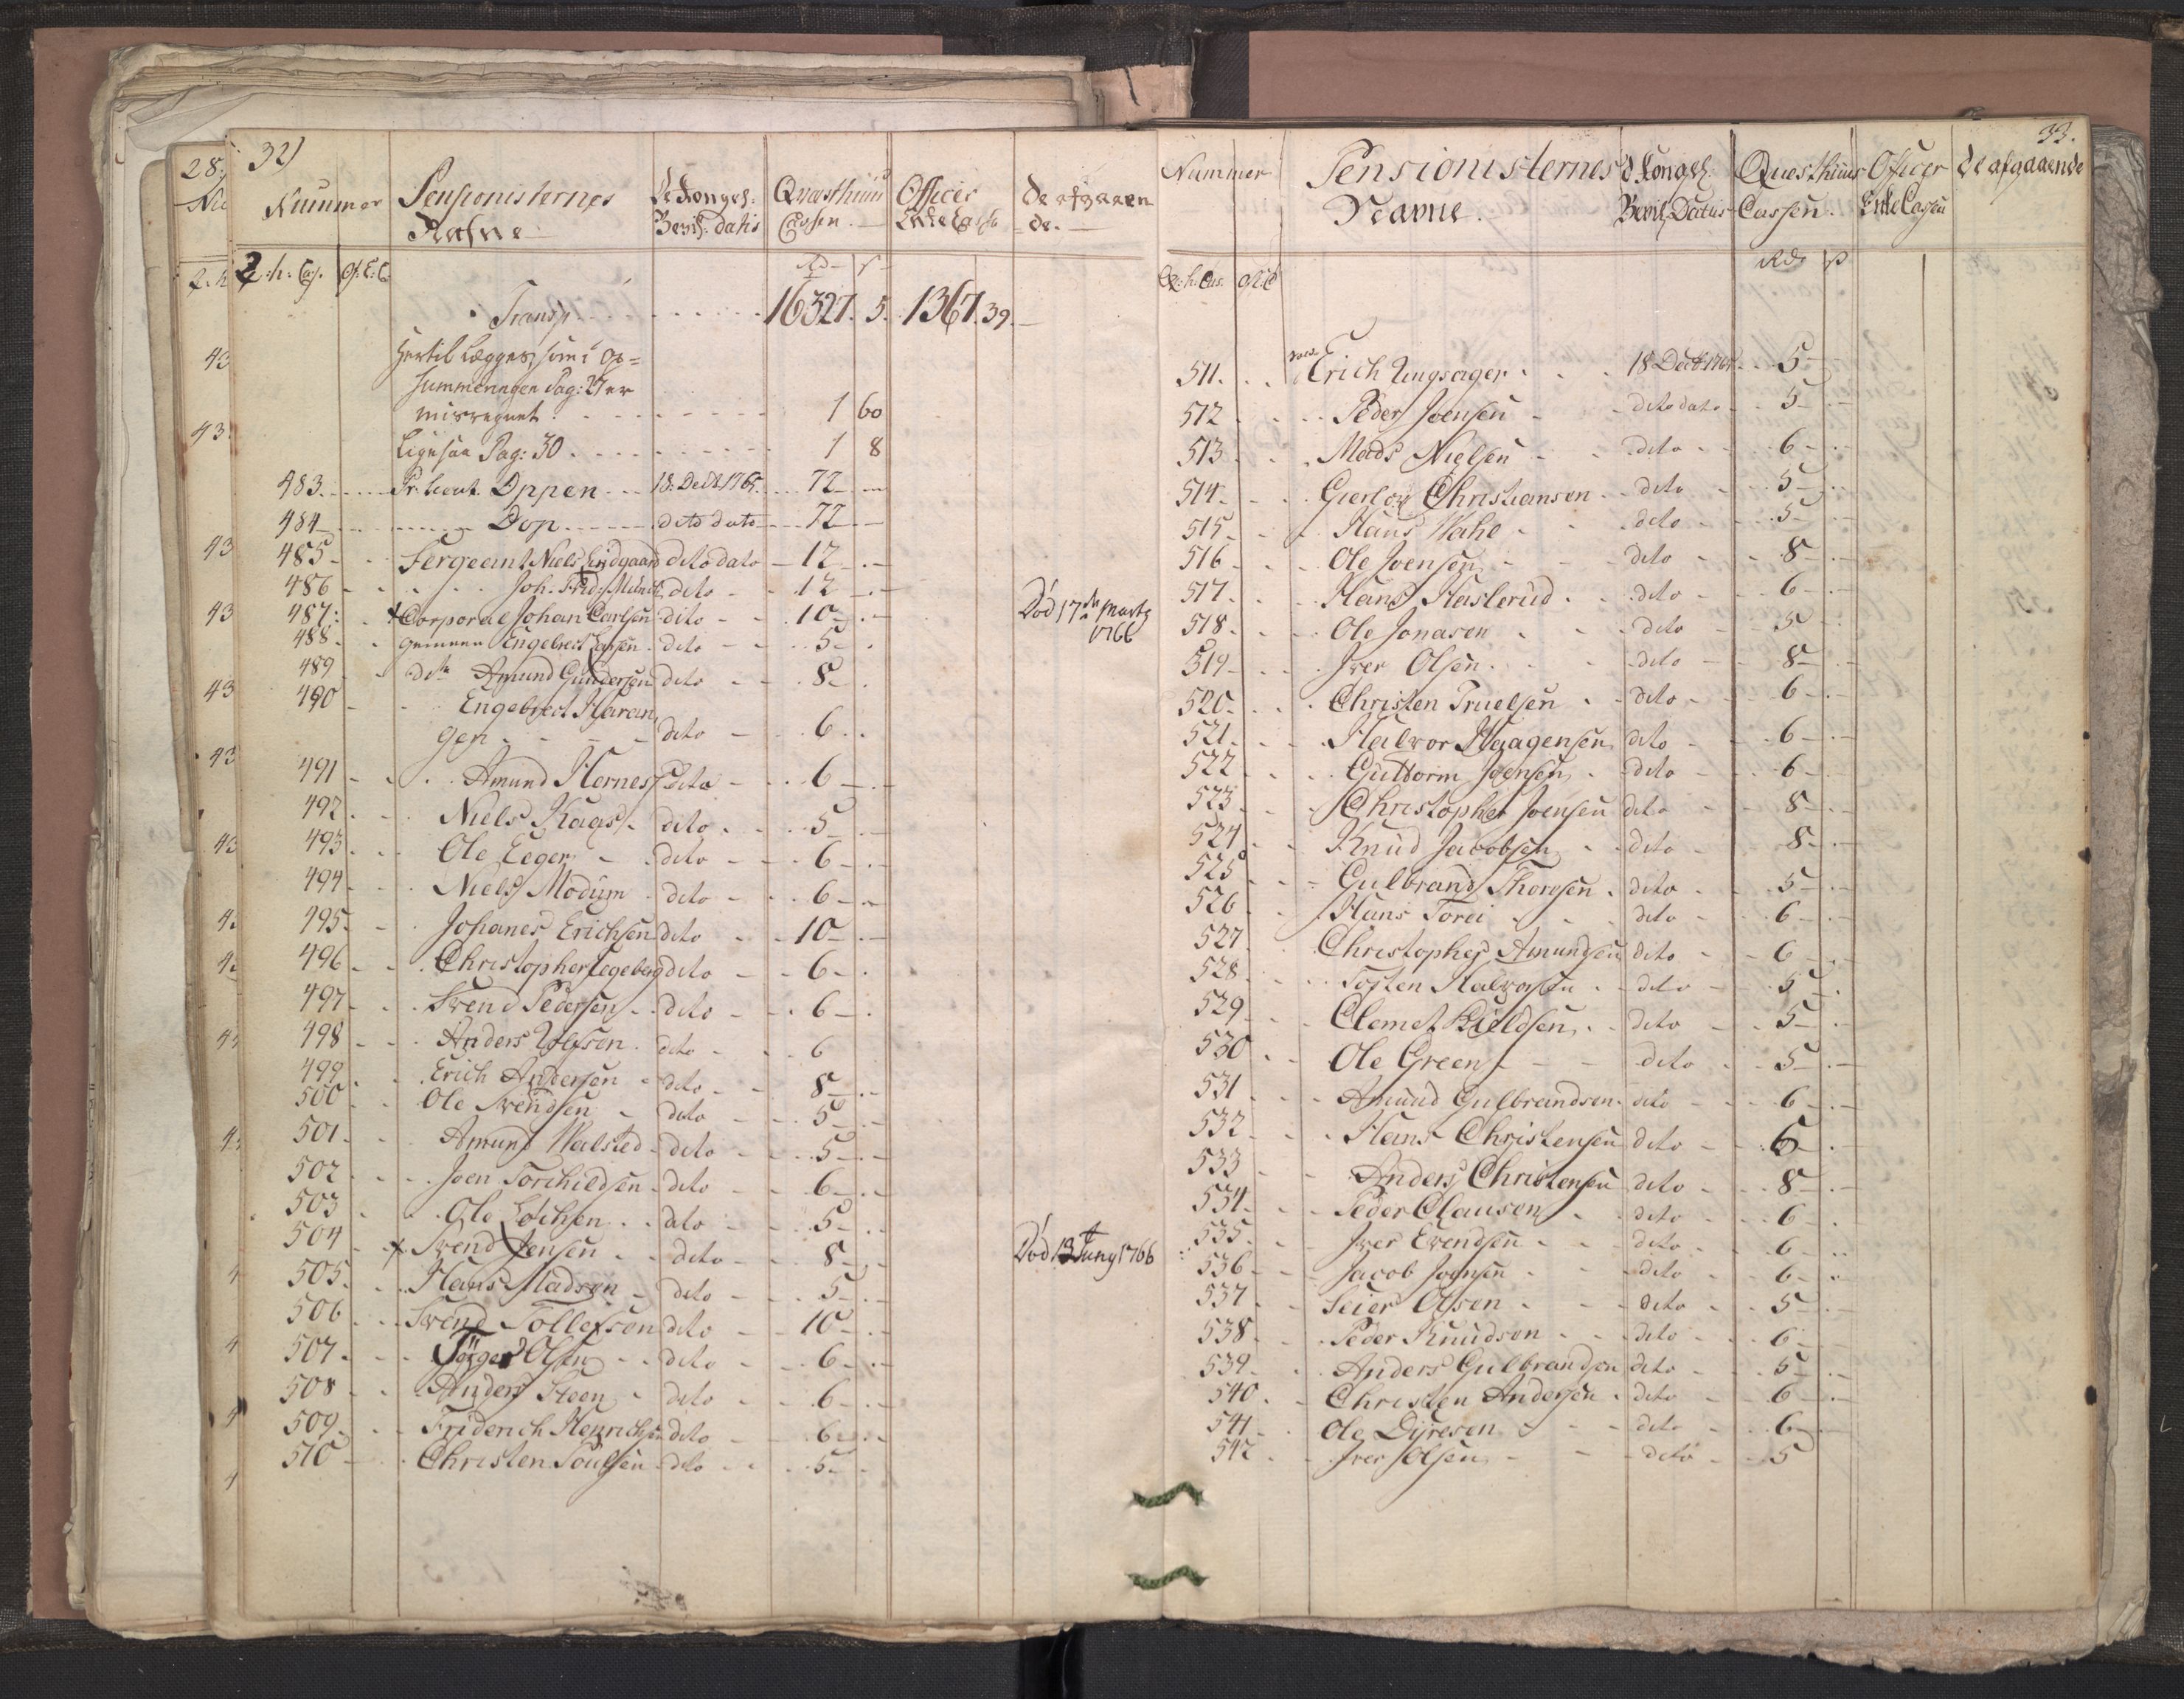 32)
Nummer Pensionisternes De Kongel: Qvæsthuus Officer De afgaaen
Nafne Bevil: datis Cassen. Enke Casse de.
Q:h: Cas. Of: E: C. Rd s
Transp. 16327. 5. 1367. 39.
Hertil Lægges, som i Op=
summeringen Pag: 27 er
misregnet 1 60
Ligesaa Pag: 30 1 8
483. Pr. Lieut. Oppen 18. Decbr 1765. 72
484 Dop dito dato 72
485 Sergeant Niels Lindgaard dito dato 12
486 Joh. Frid: Münch dito 12
487: Corporal Johan Carlsen dito 10 Død 17de Marty
1766
488 gemeene Engebrect Larsen dito 5
489 dito Amund Gundersen dito 8
490 Engebrect Haran
gen dito 6
491 Amund Hernes dito 6
492 Niels Kaas dito 5
493 Ole Eeger dito 6
494 Niels Modum dito 6
495 Johanes Erichsen dito 10
496 Christopher Segeberg dito 6
497 Svend Pedersen dito 6
498 Anders Wlfsen dito 6
499 Erich Andersen dito 8
500 Ole Svendsen dito 5
501 Amund Walsted dito 5
502 Joen Torchildsen dito 6
503 Ole Lochsen dito 5
504 Svend Jensen dito 8 Død 13 Juny 1766
505 Hans Madsen dito 5
506 Svend Tollefsen dito 10
507 Tørger Olsen dito 6
508 Anders Steen dito 6
509 Friderich Henrichsen dito 6
510 Christen Poulsen dito 5
33.
Nummer Pensionisternes d Kongel: Quæsthuus Officer De afgaaende
Navne. Bevil. Datis Cassen. Enke Casen
Q: h. Cas. Of. E. C Rd s
511. Erich Ungsager 18 Decbr 1765 5
512 Peder Joensen dito dato 5
513 Mads Nielsen dito 6
514 Gierlov Christiansen dito 5
515 Hans Wahe dito 5
516 Ole Joensen dito 8
517 Hans Haslerud dito 6
518 Ole Jonasen dito 5
519 Iver Olsen dito 8
520 Christen Truelsen dito 6
521 Halvor Haagensen dito 6
522 Guttorm Joensen dito 6
523 Christopher Joensen dito 8
524 Knud Jacobsen dito 8
525 Gulbrand Thoresen dito 5
526 Hans Tordi dito 6
527 Christopher Amundsen dito 6
528 Tosten Halvorsen dito 5
529 Clemet Kieldsen dito 5
530 Ole Green dito 5
531 Amund Gulbrandsen dito 6
532 Hans Christensen dito 6
533 Anders Christensen dito 8
534 Peder Clausen dito 6
535 Iver Evendsen dito 6
536 Jacob Joensen dito 6
537 Seier Olsen dito 5
538 Peder Knudsen dito 6
539 Anders Gulbrandsen dito 5
540 Christen Andersen dito 6
541 Ole Dyresen dito 6
542 Iver Olsen dito 5